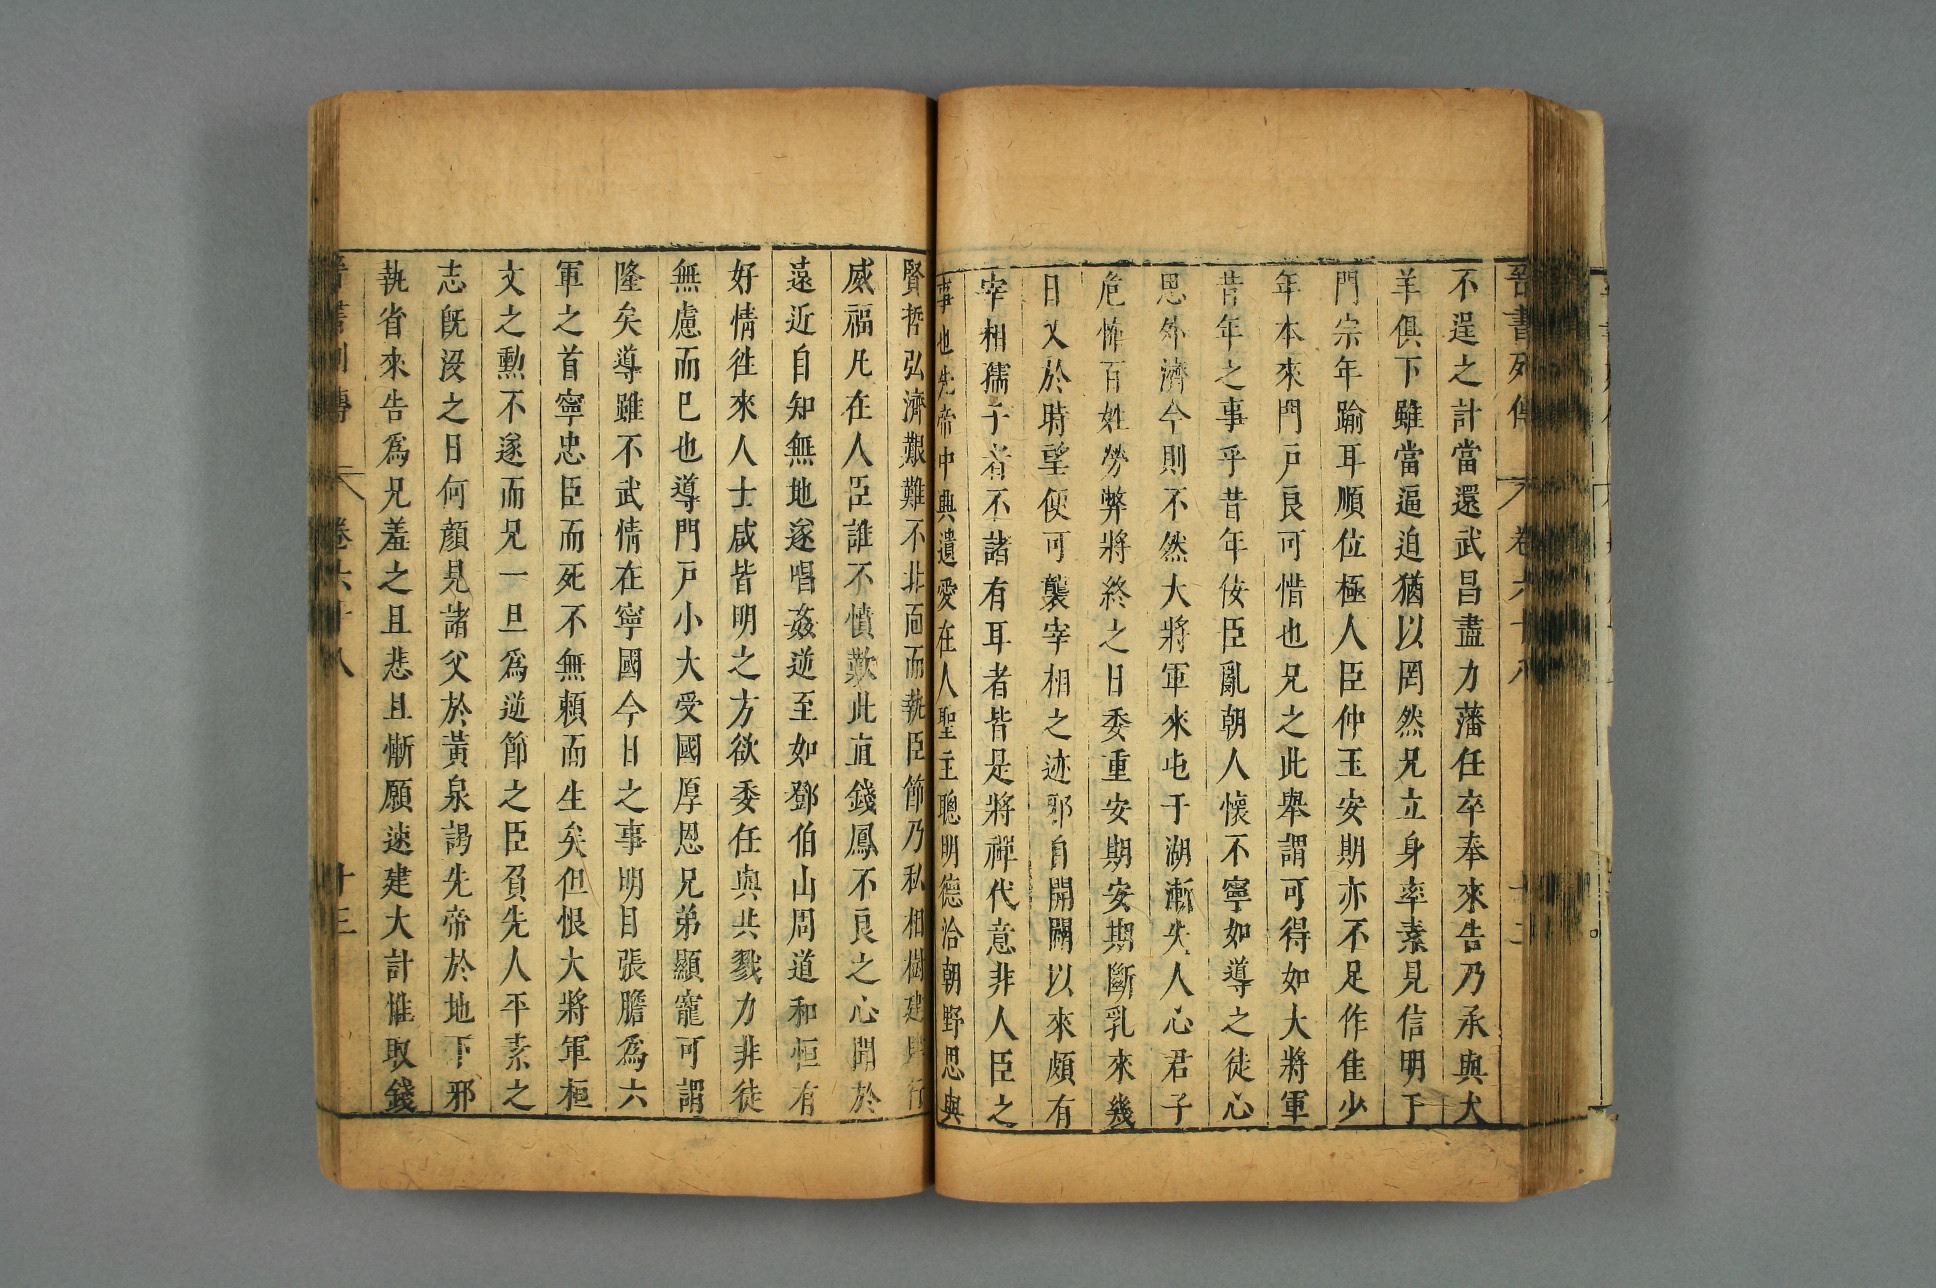 晉書列傳 卷六十八
不逞之計當還武昌盡力藩任卒奉來告乃承與犬
羊俱下雖當逼迫猶以罔然兄立身率素見信明于
門宗年踰耳順位極人臣仲玉安期亦不足作隹少
年本來門戸良可惜也兄之此舉謂可得如大將軍
昔年之事乎昔年佞臣亂朝人懷不寧如導之徒心
思外濟今則不然大將軍來屯于湖漸失人心君子
危怖百姓勞弊將終之日委重安期安期斷乳來幾
日又於時望便可襲宰相之迹邪自開闢以來頗有
宰相孺子者不諸有耳者皆是將禪代意非人臣之
事也先帝中興遺愛在人聖主聰明德洽朝野思與
賢哲弘濟艱難不北面而執臣節乃私相樹建肆行
威福凡在人臣誰不憤歎此直錢鳳不良之心聞於
遠近自知無地遂唱姦逆至如鄧伯山周道和恒有
好情徃來人士咸皆明之方欲委任與共戮力非徒
無慮而巳也導門戸小大受國厚恩兄弟顯寵可謂
隆矣導雖不武情在寧國今日之事明目張膽爲六
軍之首寧忠臣而死不無賴而生矣但恨大將軍桓
文之勲不遂而兄一旦爲逆節之臣負先人平素之
志旣沒之日何顏見諸父於黃泉謁先帝於地下邪
執省來告爲兄羞之且悲且慚願速建大計惟取錢
晉書列傳 卷六十八 十三